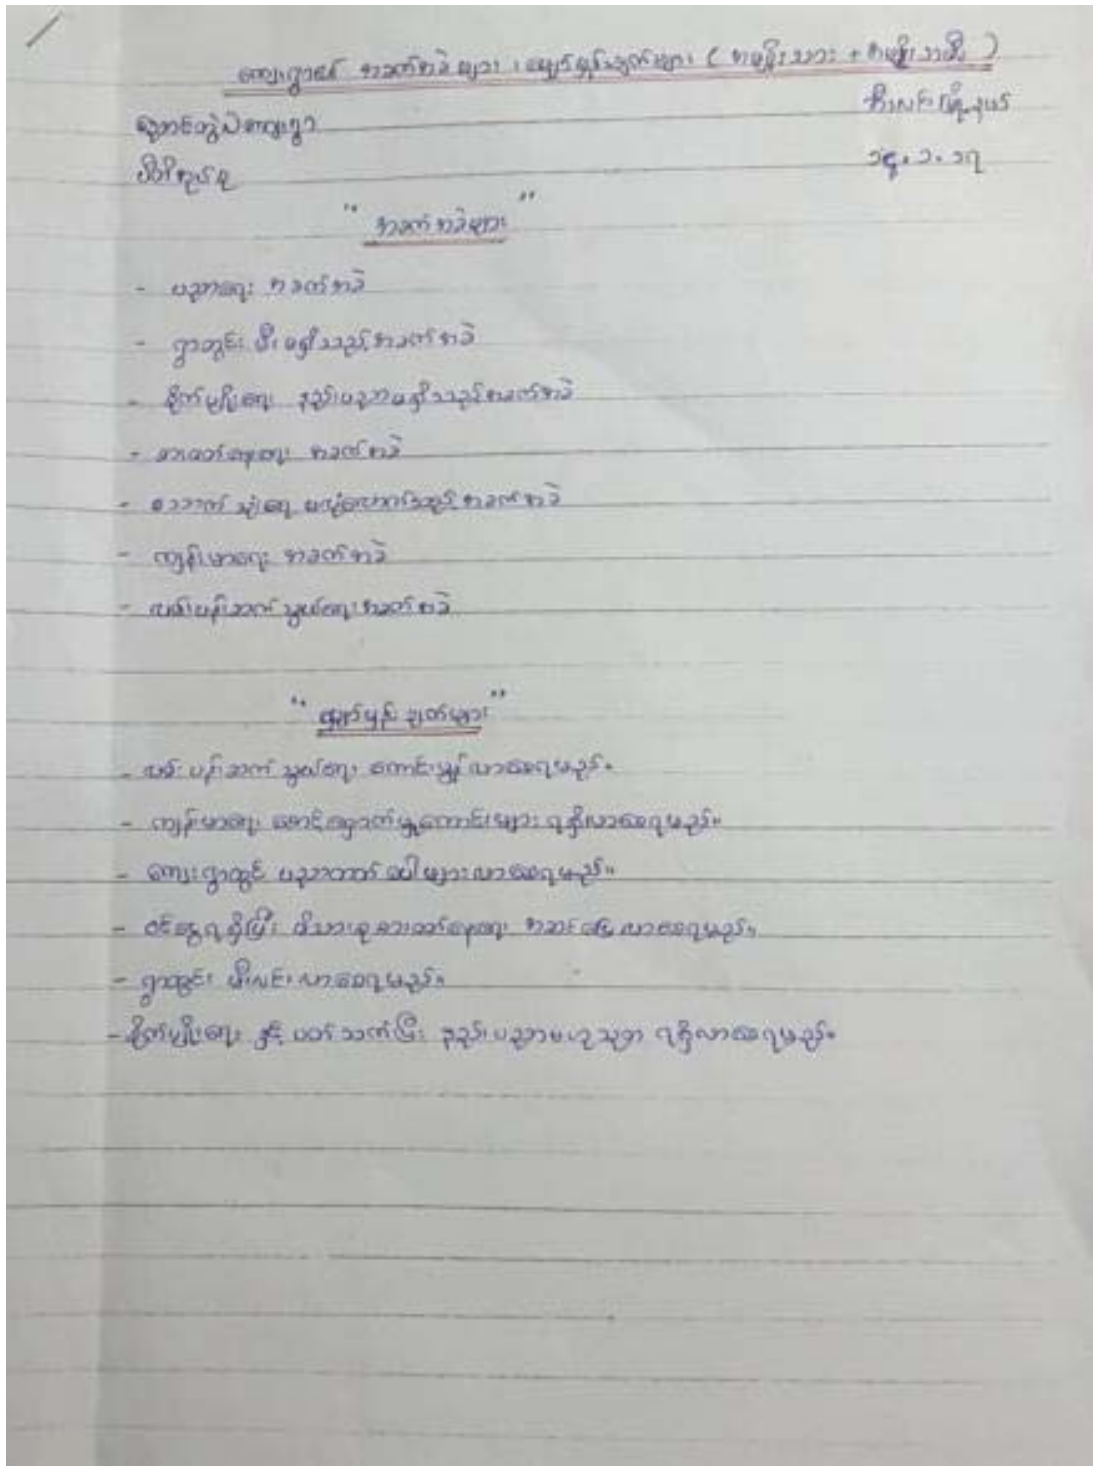 ကျေးရွာ၏ အခက်အခဲများ ၊ မျှော်မှန်းချက်များ ( အမျိုးသား + အမျိုးသမီး )
ဘီးလင်းမြို့နယ်
ကျေးရွာ
၁၄.၁.၁၇
" အခက်အခဲများ "
- ပညာရေး အခက်အခဲ
- ရွာတွင်း မီးမရှိသည့် အခက်အခဲ
- စိုက်ပျိုးရေး နည်းပညာမရှိသည့်အခက်အခဲ
- စားဝတ်နေရေး အခက်အခဲ
- သောက်သုံးရေ မလုံလောက်သည့် အခက်အခဲ
- ကျန်းမာရေး အခက်အခဲ
- လမ်းပန်းဆက်သွယ်ရေး အခက်အခဲ
" မျှော်မှန်းချက်များ "
- လမ်းပန်းဆက်သွယ်ရေး ကောင်းမွန်လာစေရမည်။
- ကျန်းမာရေး စောင့်ရှောက်မှုကောင်းများ ရရှိလာစေရမည်။
- ကျေးရွာတွင် ပညာတတ် ပေါများလာစေရမည်။
- ဝင်ငွေရရှိပြီး မိသားစုစားဝတ်နေရေး အဆင်ပြေလာစေရမည်။
- ရွာတွင်း မီးလင်းလာစေရမည်။
- စိုက်ပျိုးရေး နှင့် ပတ်သက်ပြီး နည်းပညာဗဟုသုတ ရရှိလာစေရမည်။